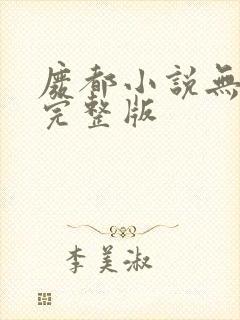 廢都小說無
完整版
李美淑